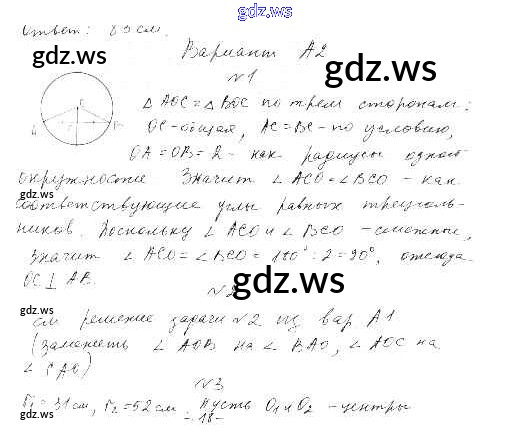 gdz.ws
Ответ: 83 см.
gdz.ws
Вариант А2
gdz.ws
№1
△AOC = △BOC по трем сторонам:
OC - общая, AC = BC - по условию,
OA = OB = 2 - как радиусы одной
окружности. Значит ∠ACO = ∠BCO - как
gdz.ws
соответствующие углы равных треуголь-
ников. Поскольку ∠ACO и ∠BCO - смежные,
gdz.ws
значит ∠ACO = ∠BCO = 180° : 2 = 90°, отсюда
OC ⊥ AB.
gdz.ws
№2
gdz.ws
см решение задачи №2 из вар. А1
(заменить ∠AOB на ∠BAO, ∠AOC на
∠CAO)
№3
r₁ = 31 см, r₂ = 52 см. Пусть O₁ и O₂ - центры
gdz.ws
- 18 -